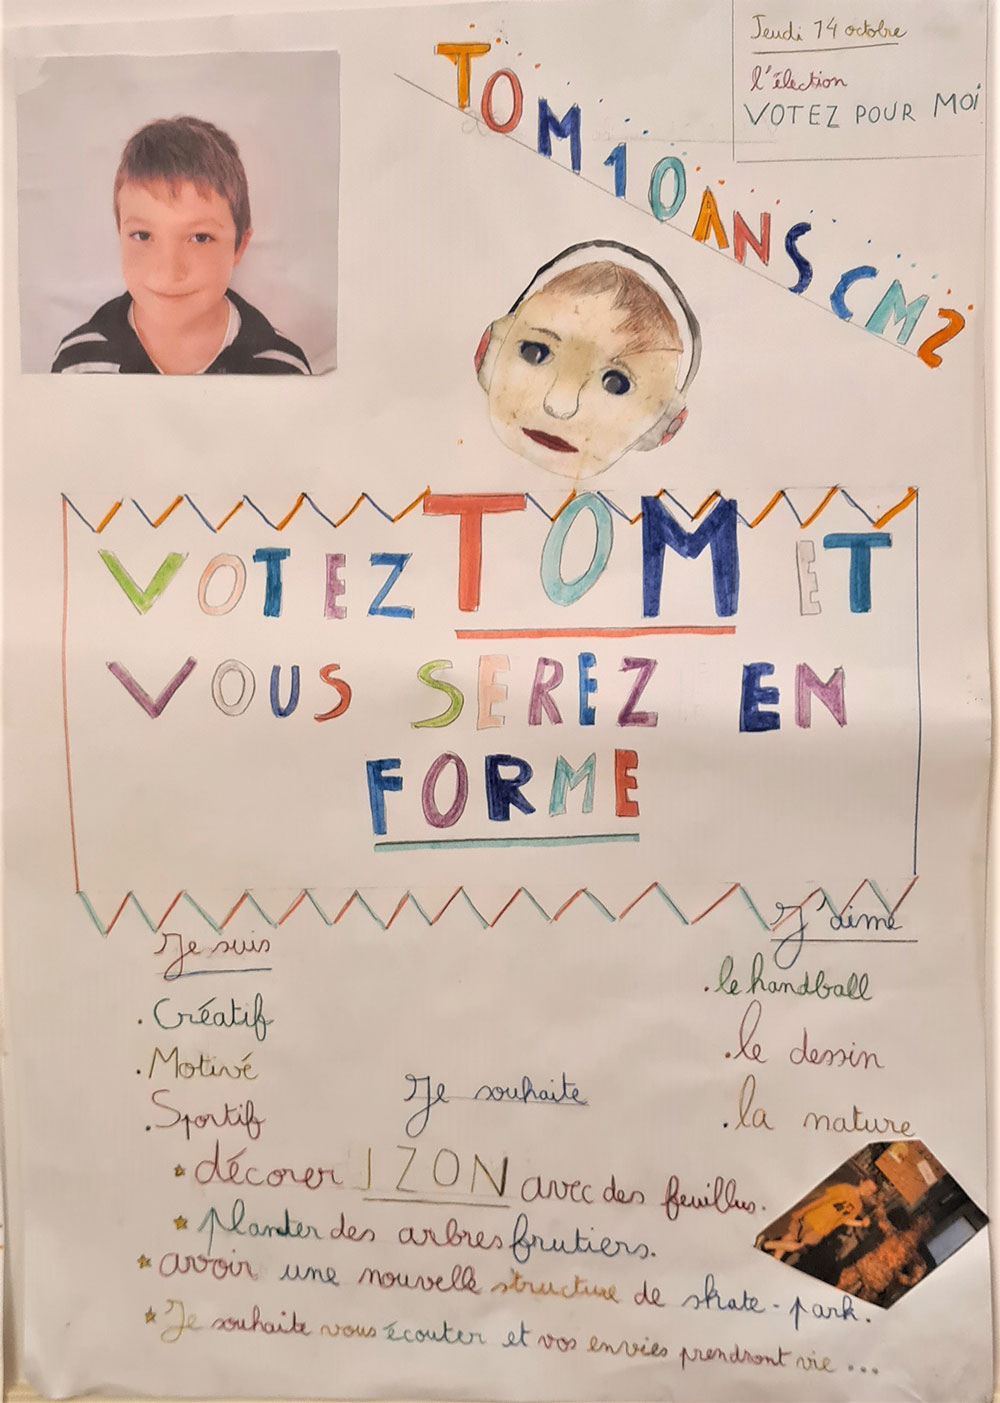 Jeudi 14 octobre
l'élection
VOTEZ POUR MOI
TOM 10 ANS CM2
VOTEZ TOM ET
VOUS SEREZ EN
FORME
Je suis
. Créatif
. Motivé
. Sportif
J'aime
. le handball
. le dessin
. la nature
Je souhaite
* décorer IZON avec des feuillus.
* planter des arbres frutiers.
* avoir une nouvelle structure de skate-park.
* Je souhaite vous écouter et vos envies prendront vie ...